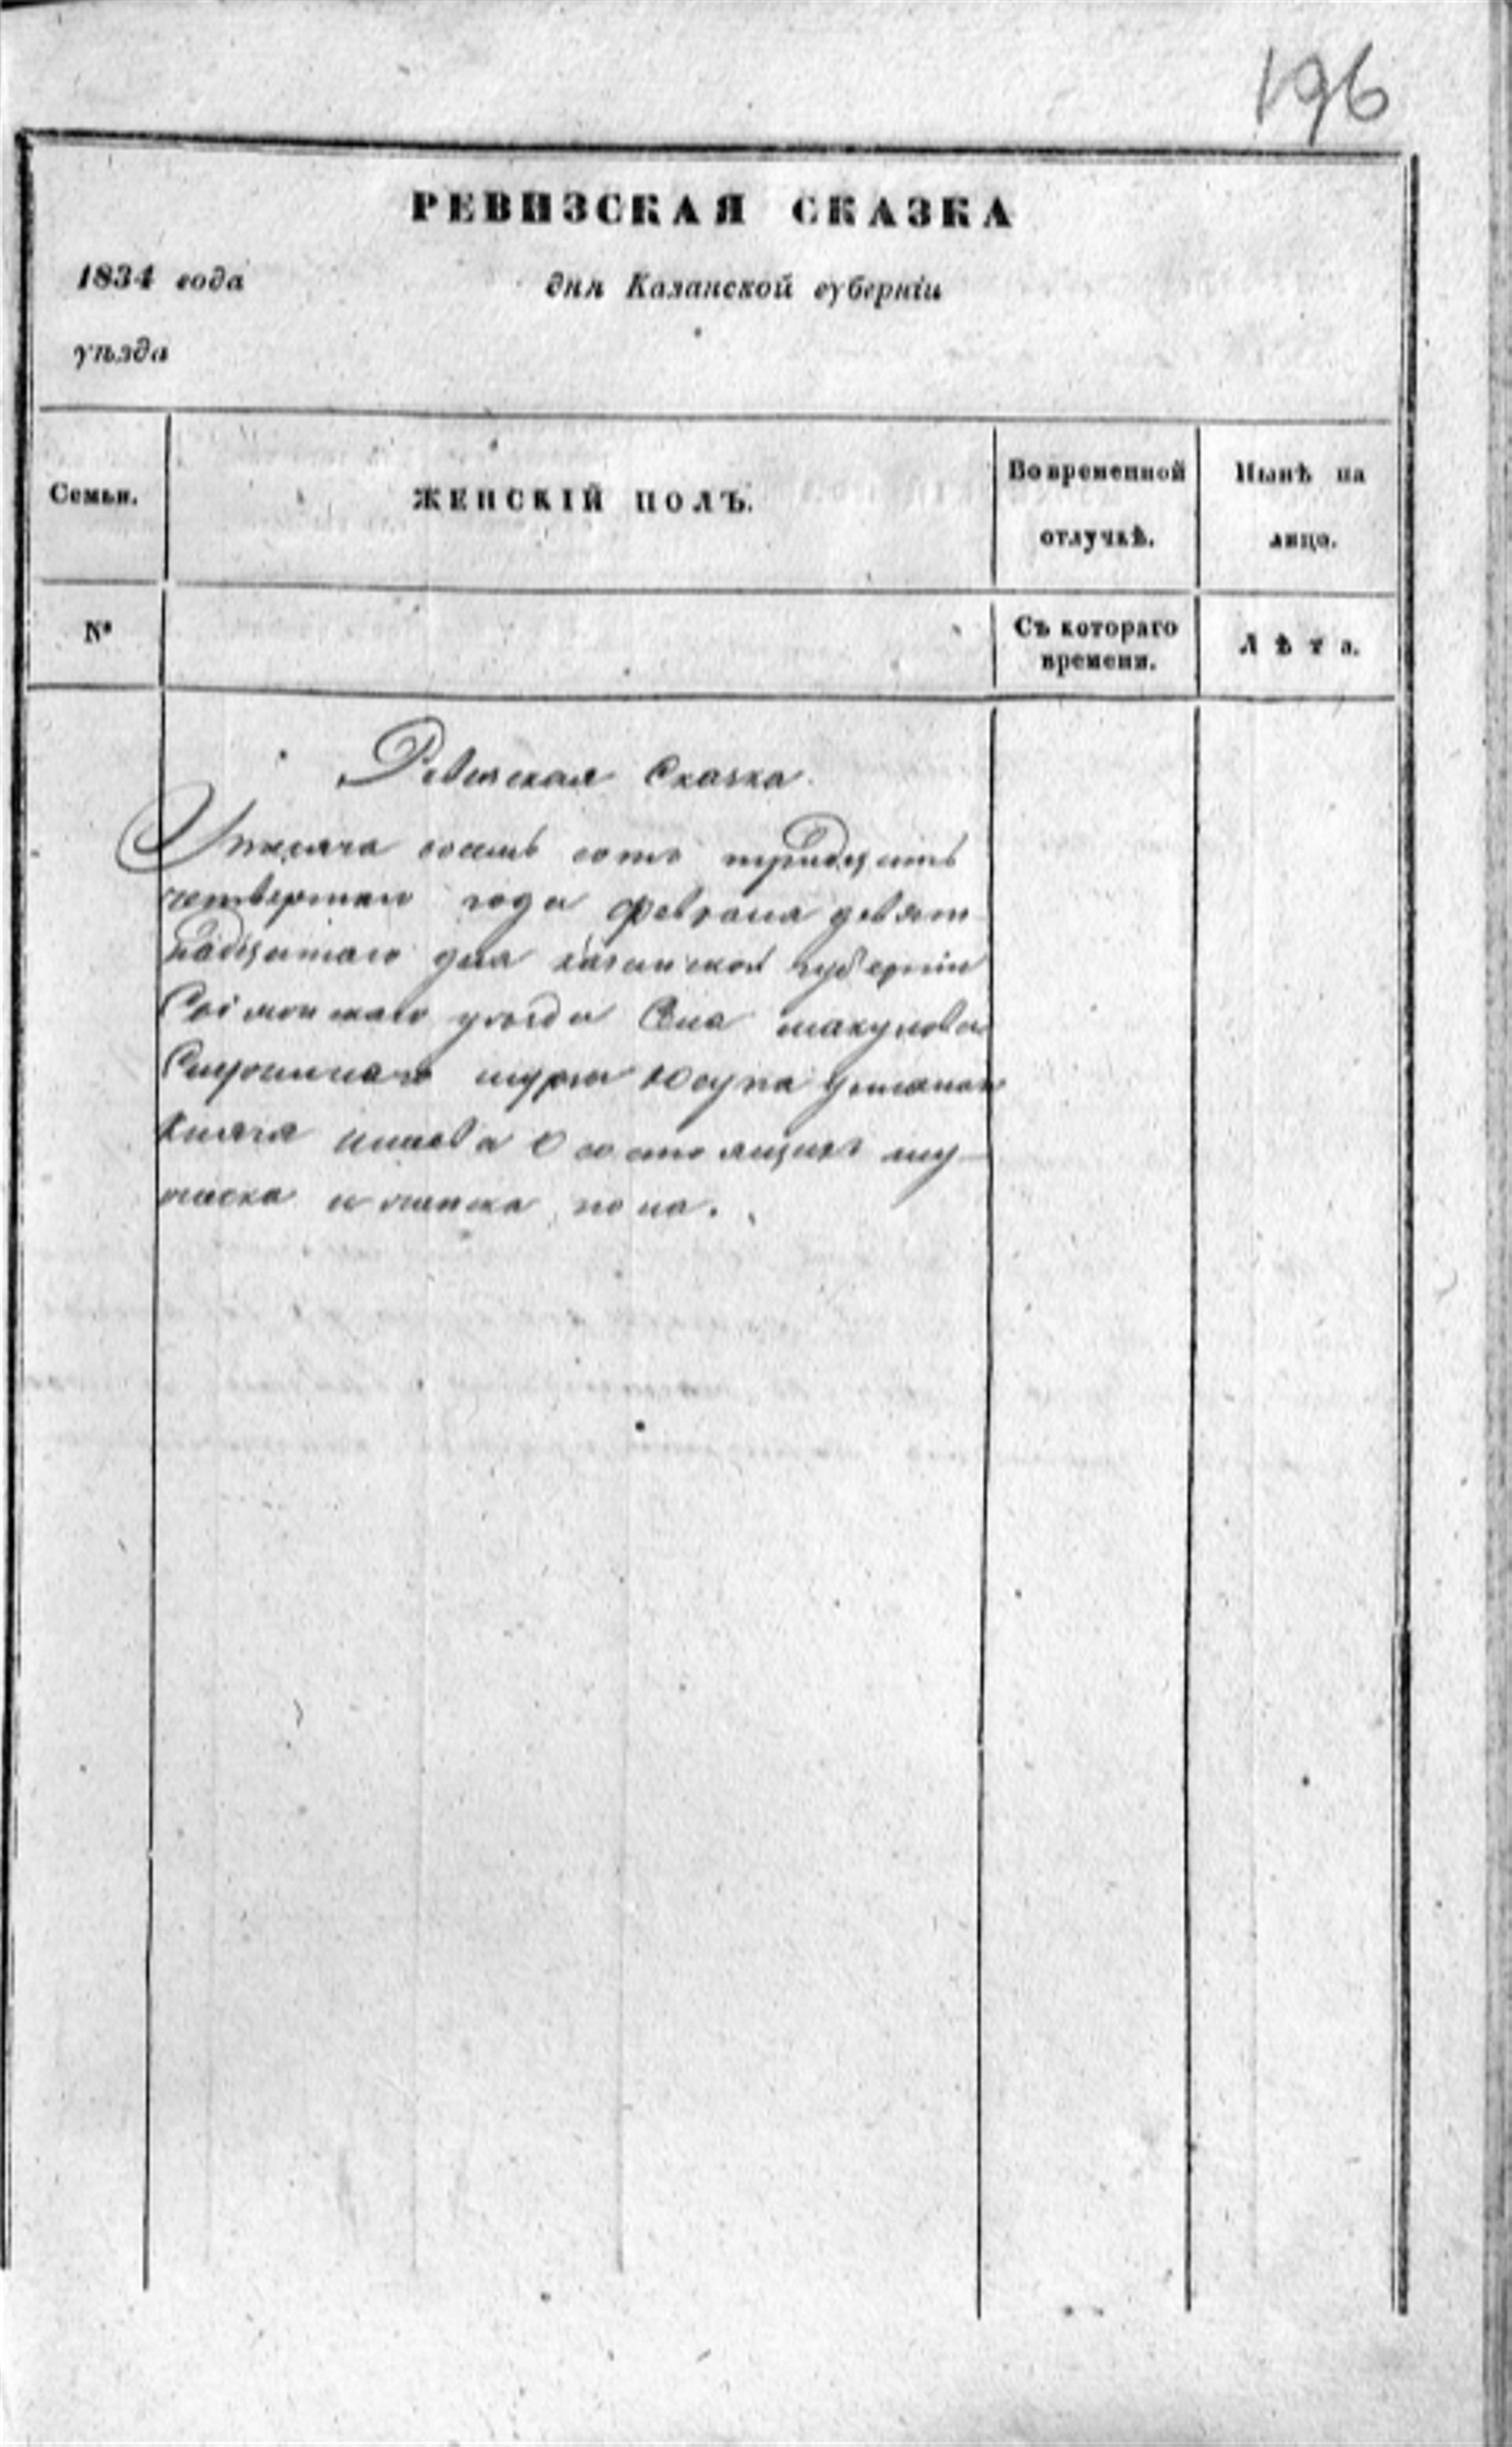 196
РЕВИЗСКАЯ СКАЗКА
1834 года дня Казанской губерніи
уѣзда
Семьи. ЖЕНСКІЙ ПОЛЪ. Во временной отлучкѣ. Нынѣ на лицо.
№ Съ котораго времени. Лѣта.
Ревизская Сказка
тысяча восемь сотъ тридцать
четвертаго года февраля девят
надцатаго дня казанской губерніи
уѣзда Села
мурзы Юсупа
Князя о состоящихъ му
жеска и женска пола.